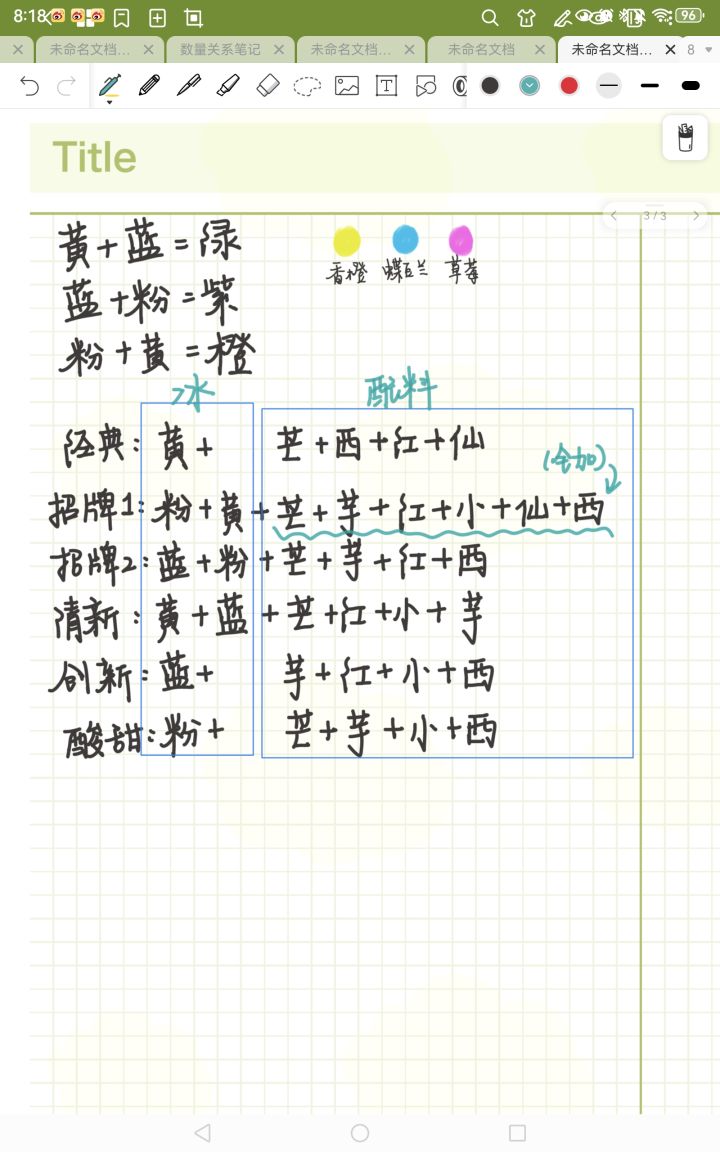 8:18 96
未命名文档... 数量关系笔记 未命名文档... 未命名文档 未命名文档... 8
Title
3/3
黄+蓝=绿
蓝+粉=紫
粉+黄=橙
香橙 蝶豆兰 草莓
冰 配料
经典:黄+ 芒+西+红+仙
(全加)
招牌1:粉+黄+芒+芋+红+小+仙+西
招牌2:蓝+粉+芒+芋+红+西
清新:黄+蓝+芒+红+小+芋
创新:蓝+ 芋+红+小+西
酸甜:粉+ 芒+芋+小+西